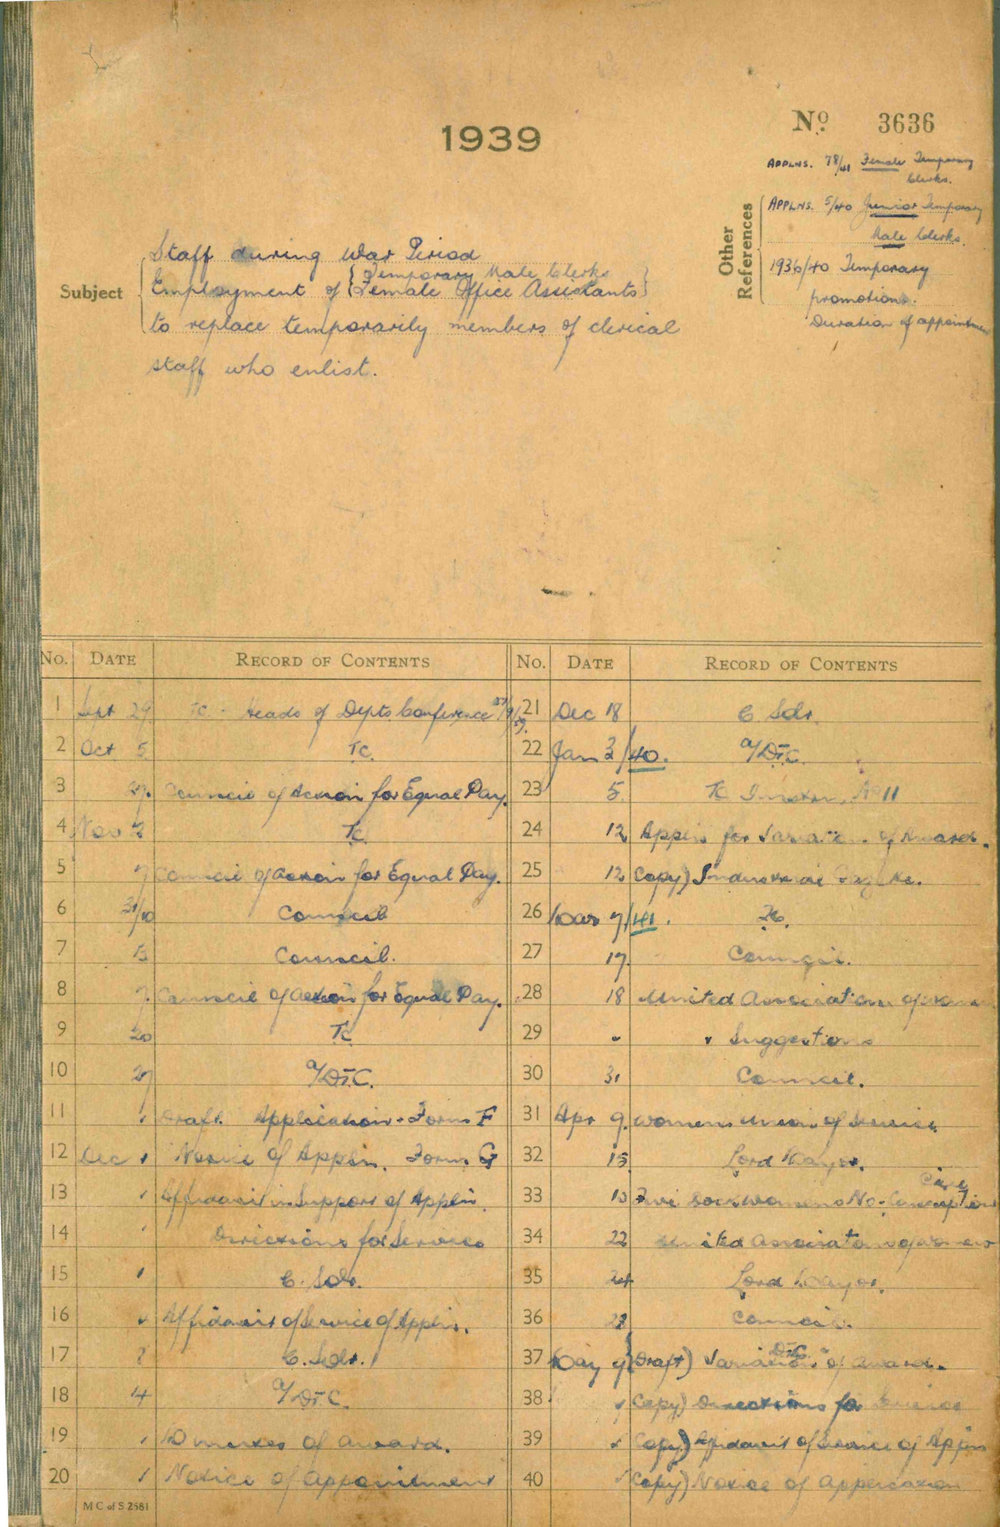 1939
No. 3636
APPLNS. 78/41 Female Temporary
Clerks.
APPLNS. 5/40 Junior Temporary
Male Clerks.
Other References
1936/40 Temporary
promotions.
Duration of appointment
Subject
Staff during War Period
Employment of { Temporary Male Clerks
Female Office Assistants }
to replace temporarily members of clerical
staff who enlist.
No. DATE RECORD OF CONTENTS No. DATE RECORD OF CONTENTS
1 Sept 29 TC - Heads of Depts Conference 27/9/39.
2 Oct 5 TC.
3 27. Council of Action for Equal Pay.
4 Nov 2 TC.
5 7 Council of Action for Equal Pay.
6 31/10 Council
7 13 Council.
8 7. Council of Action for Equal Pay.
9 20 TC
10 27 A/D.T.C.
11 Draft Application - Form F
12 Dec 1 Notice of Appln. Form G
13 Affidavit in Support of Appln.
14 Directions for Service
15 C. Solr.
16 Affidavit of Service of Appln.
17 C. Solr.
18 4 A/D.T.C.
19 Minutes of Award.
20 Notice of Appointment
21 Dec 18 C. Solr.
22 Jan 3/40. A/D.T.C.
23 5. TC No 11
24 12 Appln for Variation of Award.
25 12 Copy) Industrial Gazette.
26 Mar 7/41. TC.
27 17. Council.
28 18 United Associations of Women
29 " " Suggestions
30 31 Council.
31 Apr 9. Womens Union of Service
32 15 Lord Mayor.
33 No. Conscription
34 22 United Associations of Women
35 24 Lord Mayor.
36 28 Council.
37 May 9 (Draft) Variation of Award. D.T.C.
38 Copy) Directions for Service
39 Copy) Affidavit of Service of Appln
40 Copy) Notice of Application
M C of S 2581